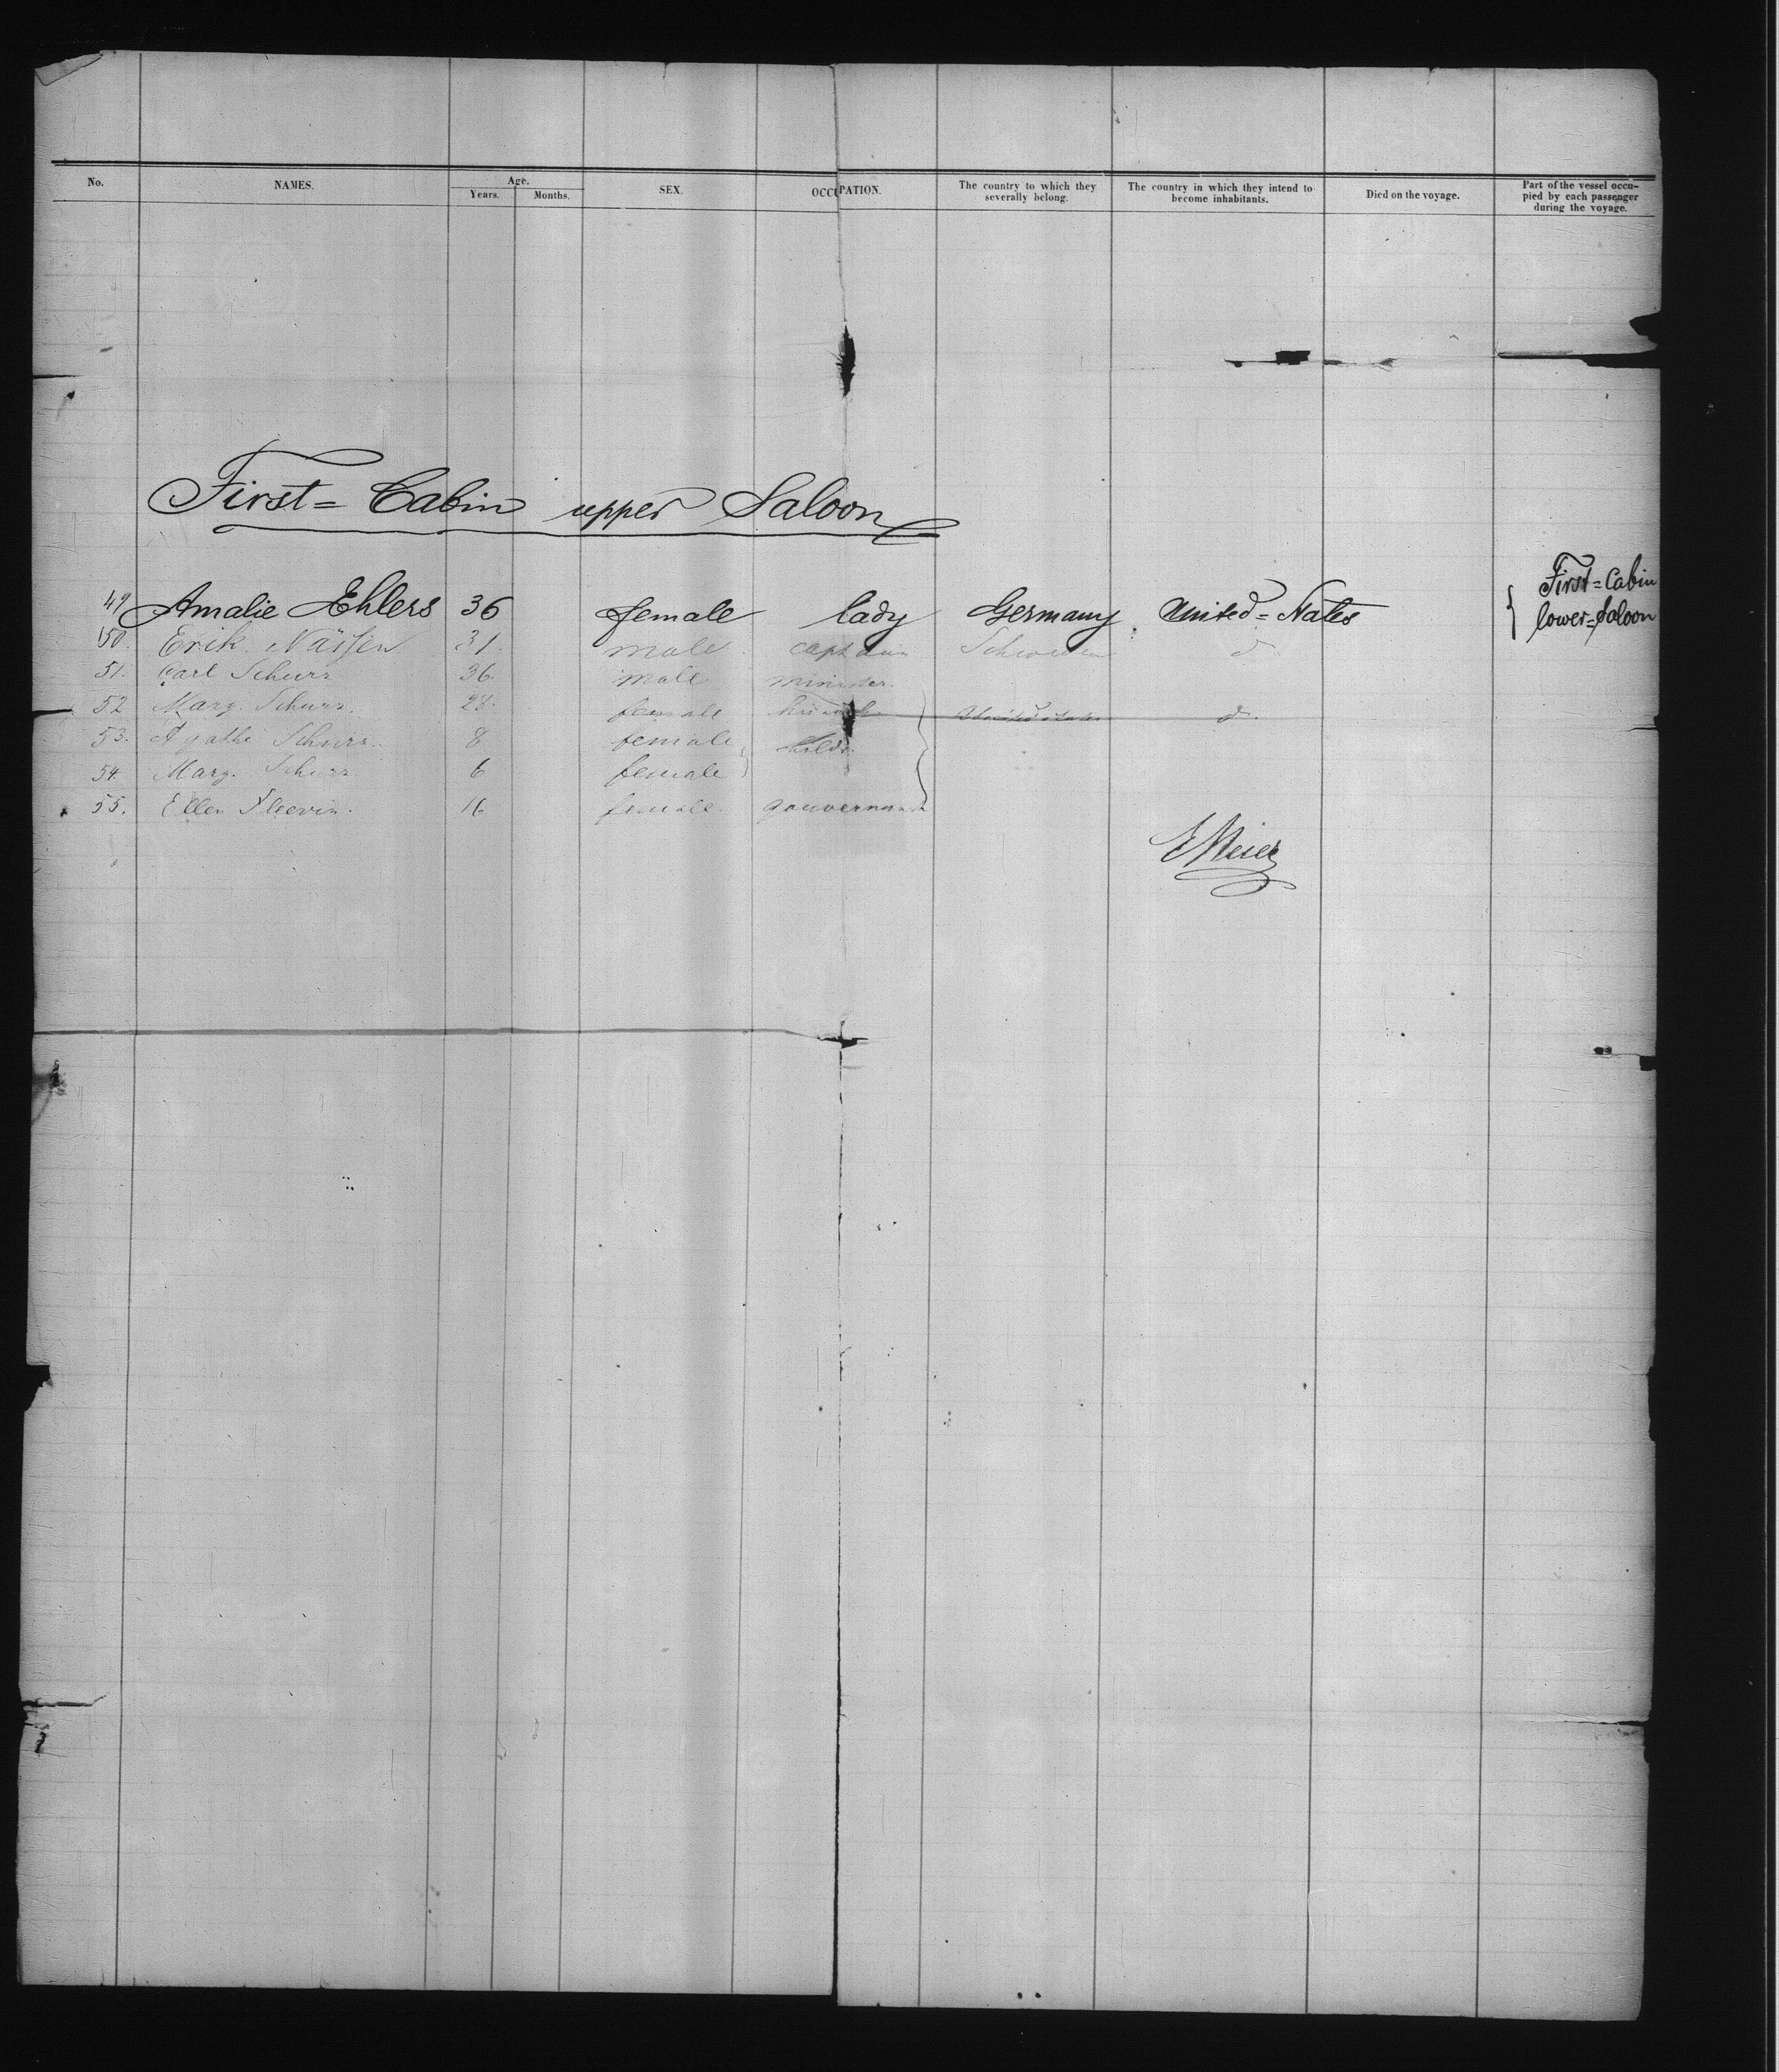 No. NAMES. Age. Years. Months. SEX. OCCUPATION. The country to which they severally belong. The country in which they intend to become inhabitants. Died on the voyage. Part of the vessel occupied by each passenger during the voyage.
First=Cabin upper Saloon
49 Amalie Ehlers 36 female lady Germany United=States { First=Cabin lower=Saloon
50. Erik 31. male captain Schweden d
51. Carl Schurz 36. male minister.
52 Marg. Schurz. 28. female his wife United States d.
53. Agathe Schurz. 8 female childr.
54. Marg. Schurz 6 female
55. Ellen 16 female. gouvernante
EMeier